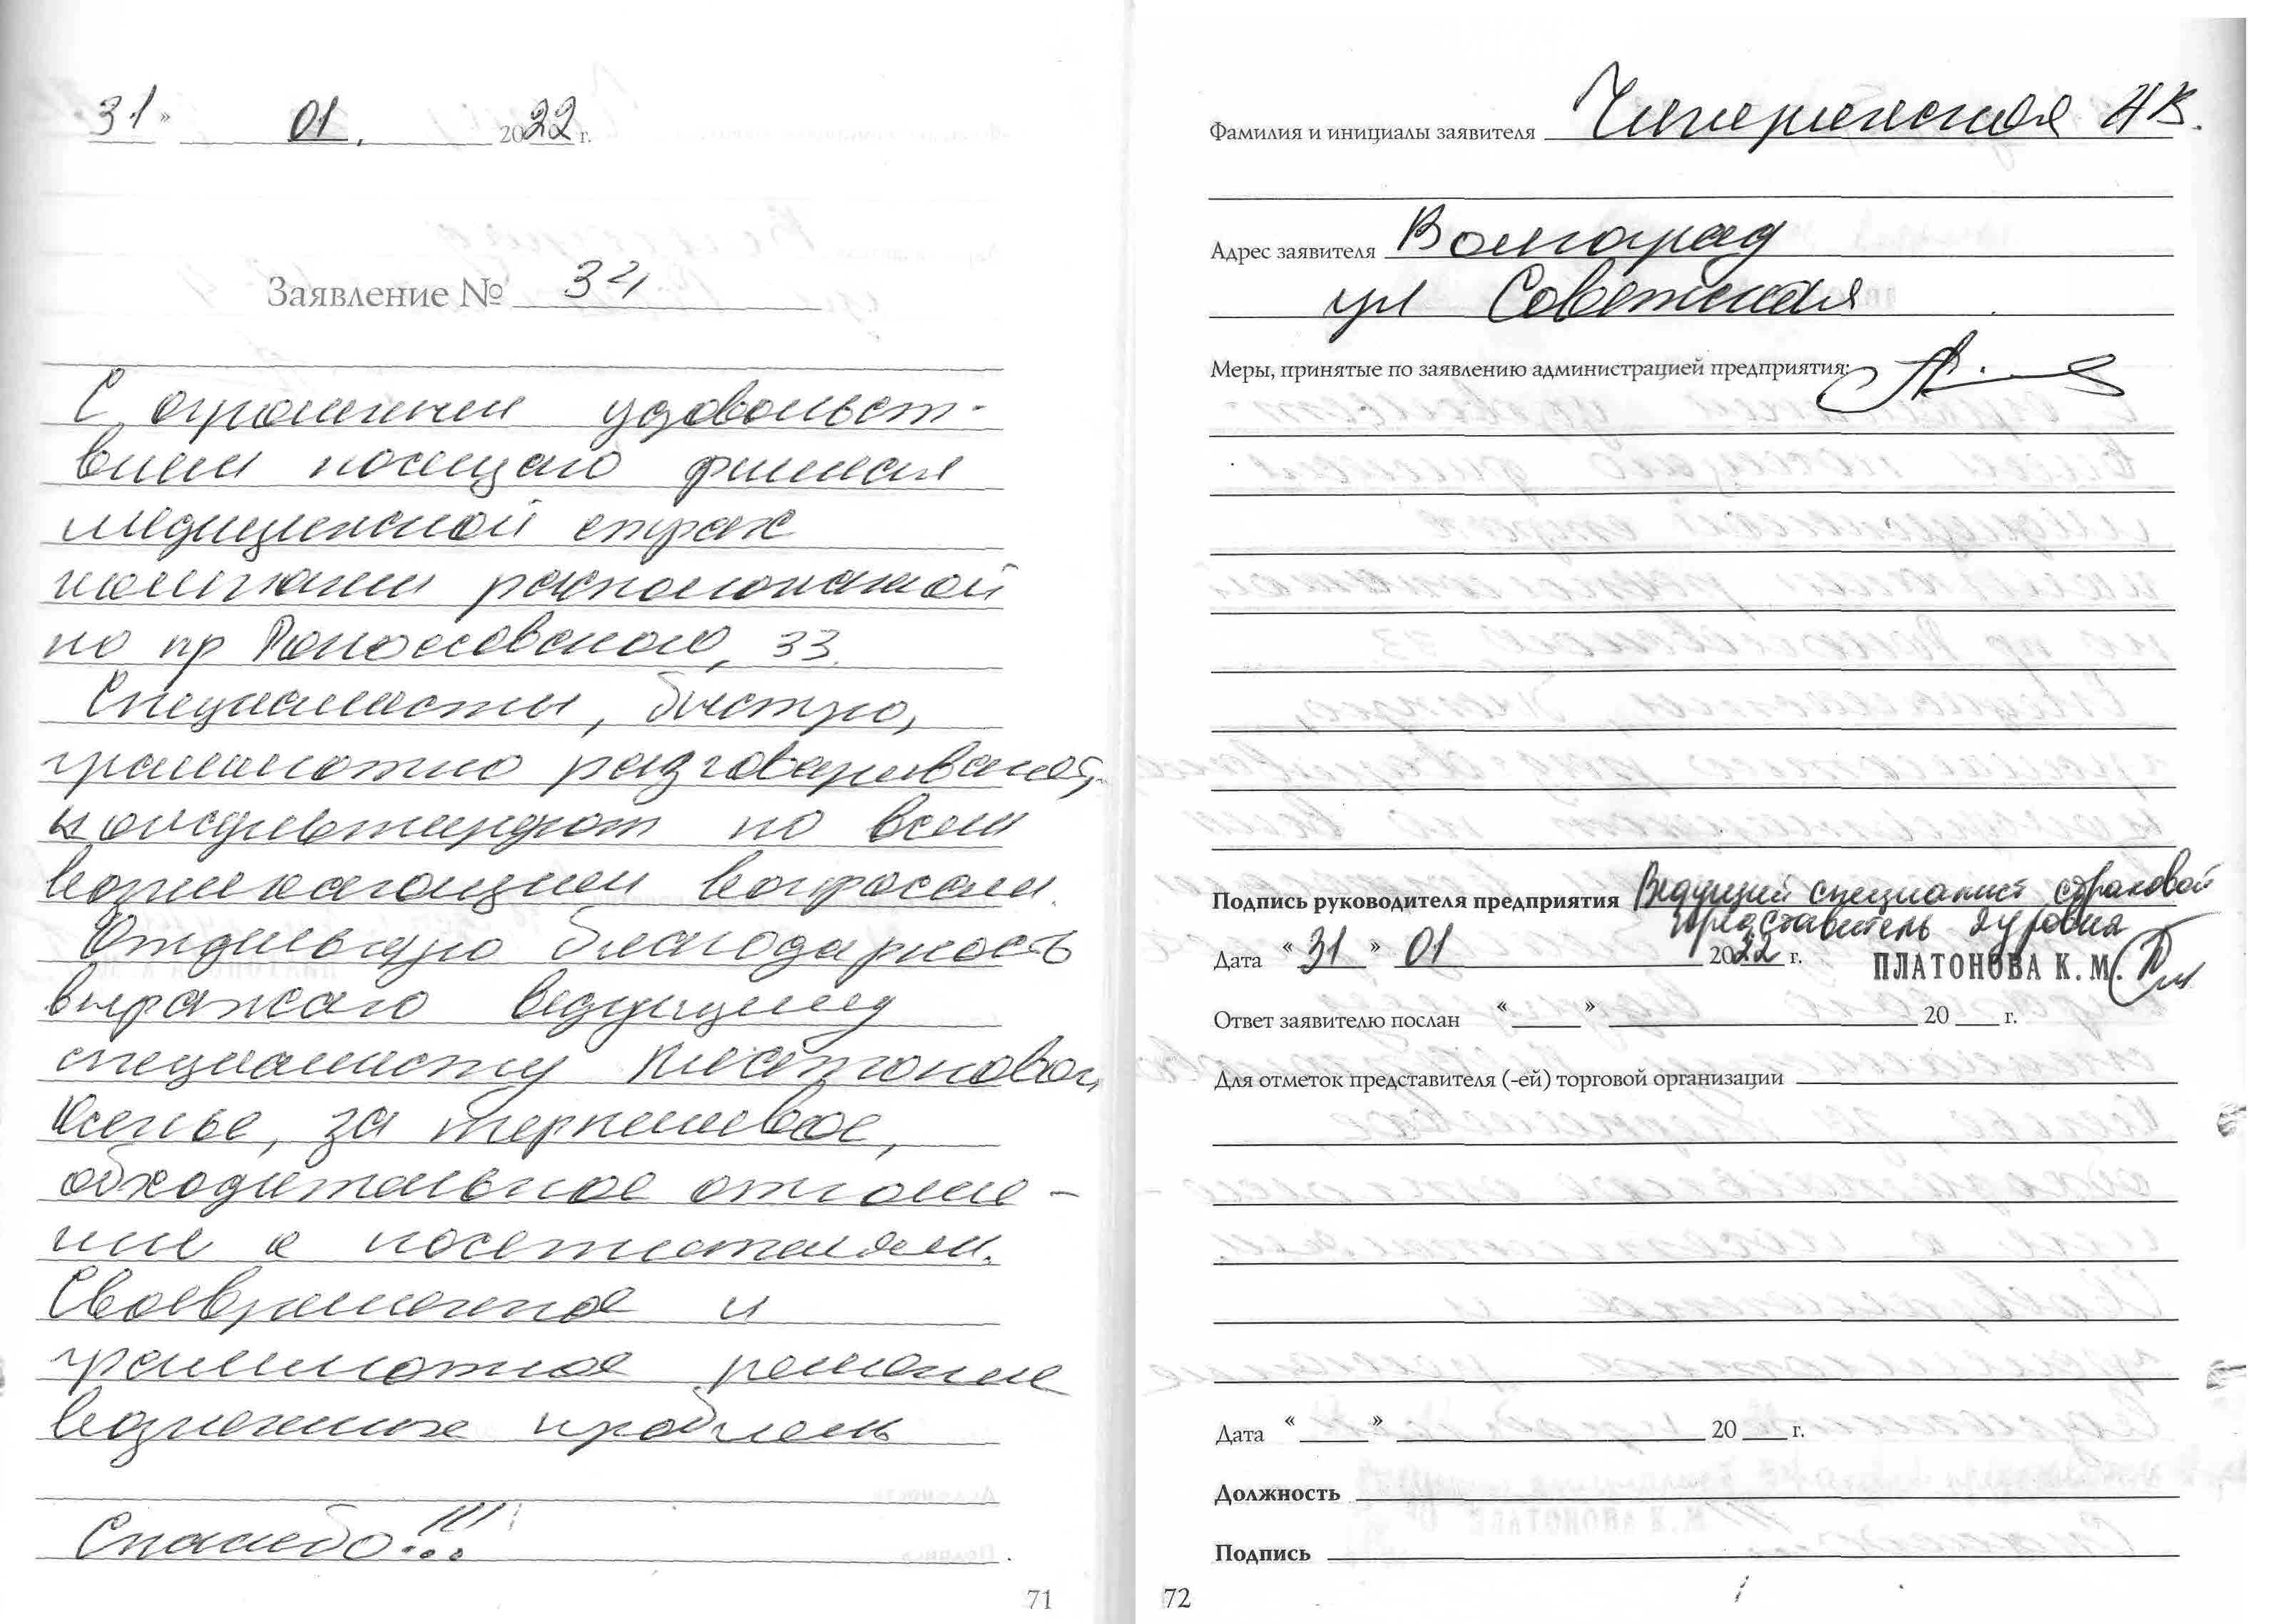 31 » 01. 2022 г.
Заявление № 34
С огромным удовольст-
вием посещаю филиал
медицинской страх
компании расположенной
по пр Рокоссовского, 33.
Специалисты, быстро,
грамотно разговаривают,
консультируют по всем
возникающим вопросам.
Отдельную благодарность
выражаю ведущему
специалисту Платоновой
Ксенье, за терпеливое,
обходительное отноше-
ние к посетителям.
Своевременное и
грамотное решение
проблем
Спасибо!!!
71
Фамилия и инициалы заявителя
Адрес заявителя Волгоград
ул Советская
Меры, принятые по заявлению администрацией предприятия:
Подпись руководителя предприятия Ведущий специалист страховой
представитель 2уровня
Дата « 31 » 01 2022 г. ПЛАТОНОВА К. М.
Ответ заявителю послан « » 20 г.
Для отметок представителя (-ей) торговой организации
Дата « » 20 г.
Должность
Подпись
72